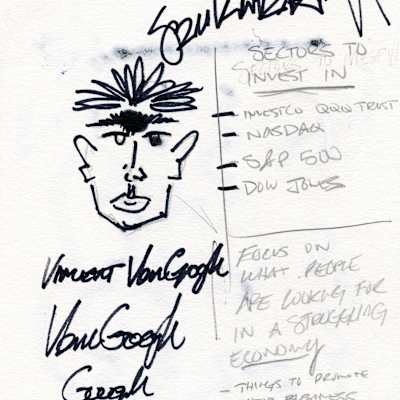 SECTORS TO
INVEST IN
- INVESTCO QQQ TRUST
- NASDAQ
- S&P 500
- DOW JONES
VINCENT VANGOGH
VANGOGH
GOOGH
FOCUS ON
WHAT PEOPLE
ARE LOOKING FOR
IN A STRUGGLING
ECONOMY
- THINGS TO PROMOTE
BUSINESS